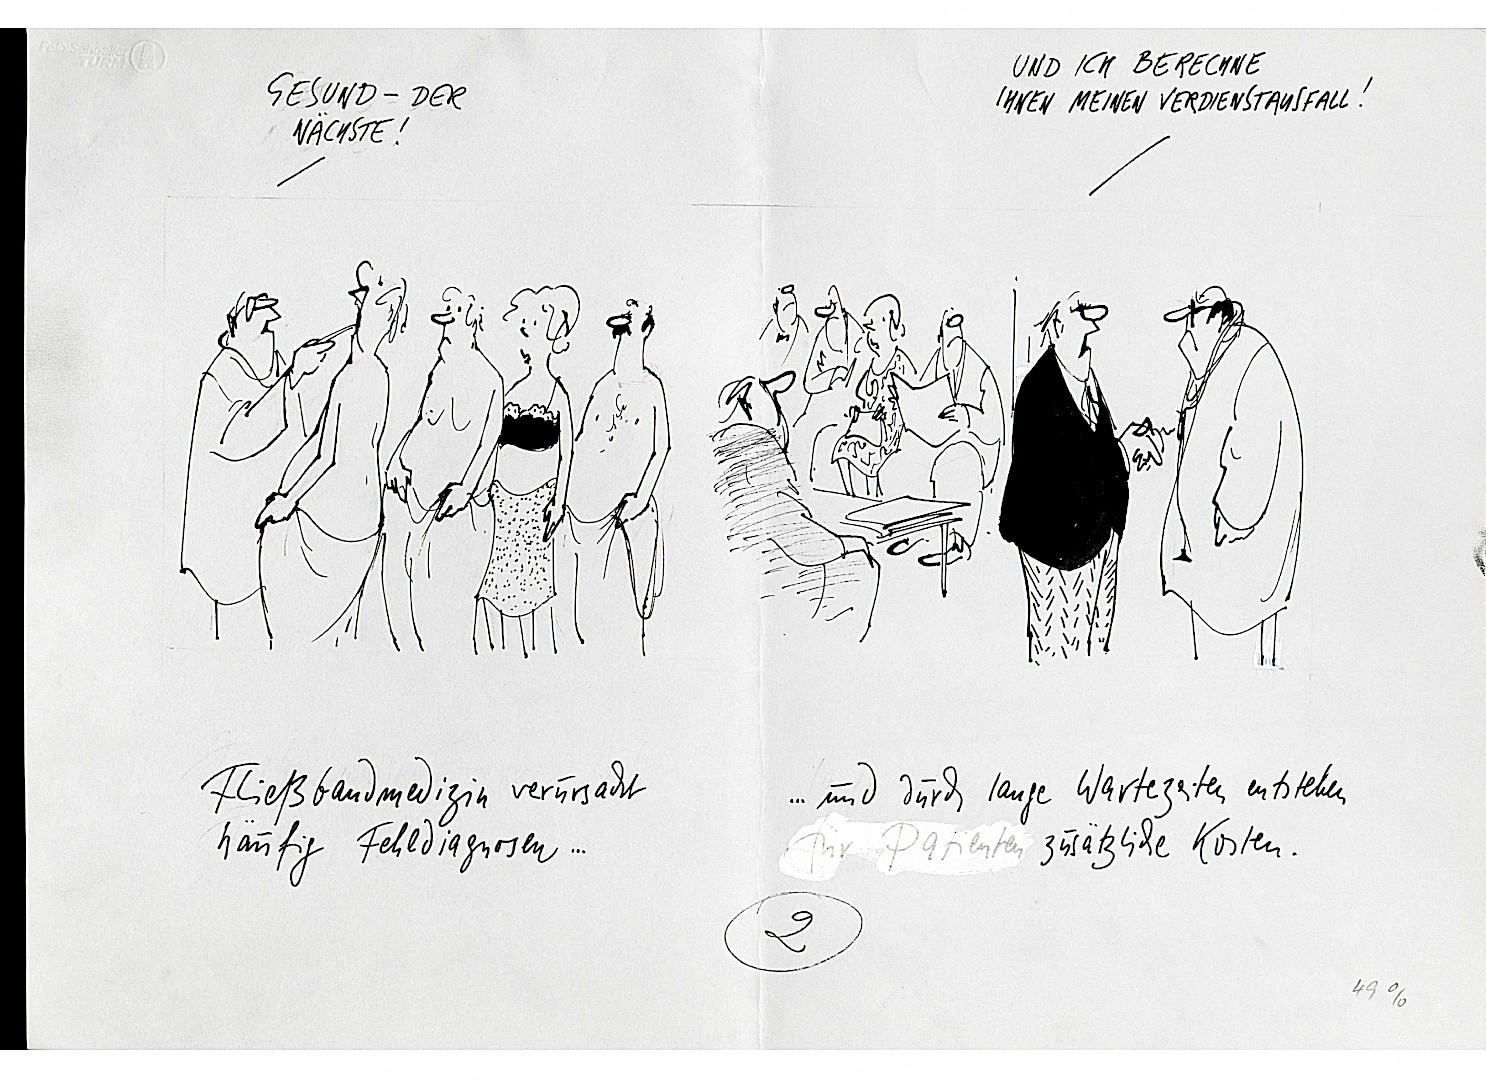 GESUND – DER
NÄCHSTE!
UND ICH BERECHNE
IHNEN MEINEN VERDIENSTAUSFALL!
Fließbandmedizin verursacht
häufig Fehldiagnosen ...
... und durch lange Wartezeiten entstehen
für Patienten zusätzliche Kosten.
2
49 %